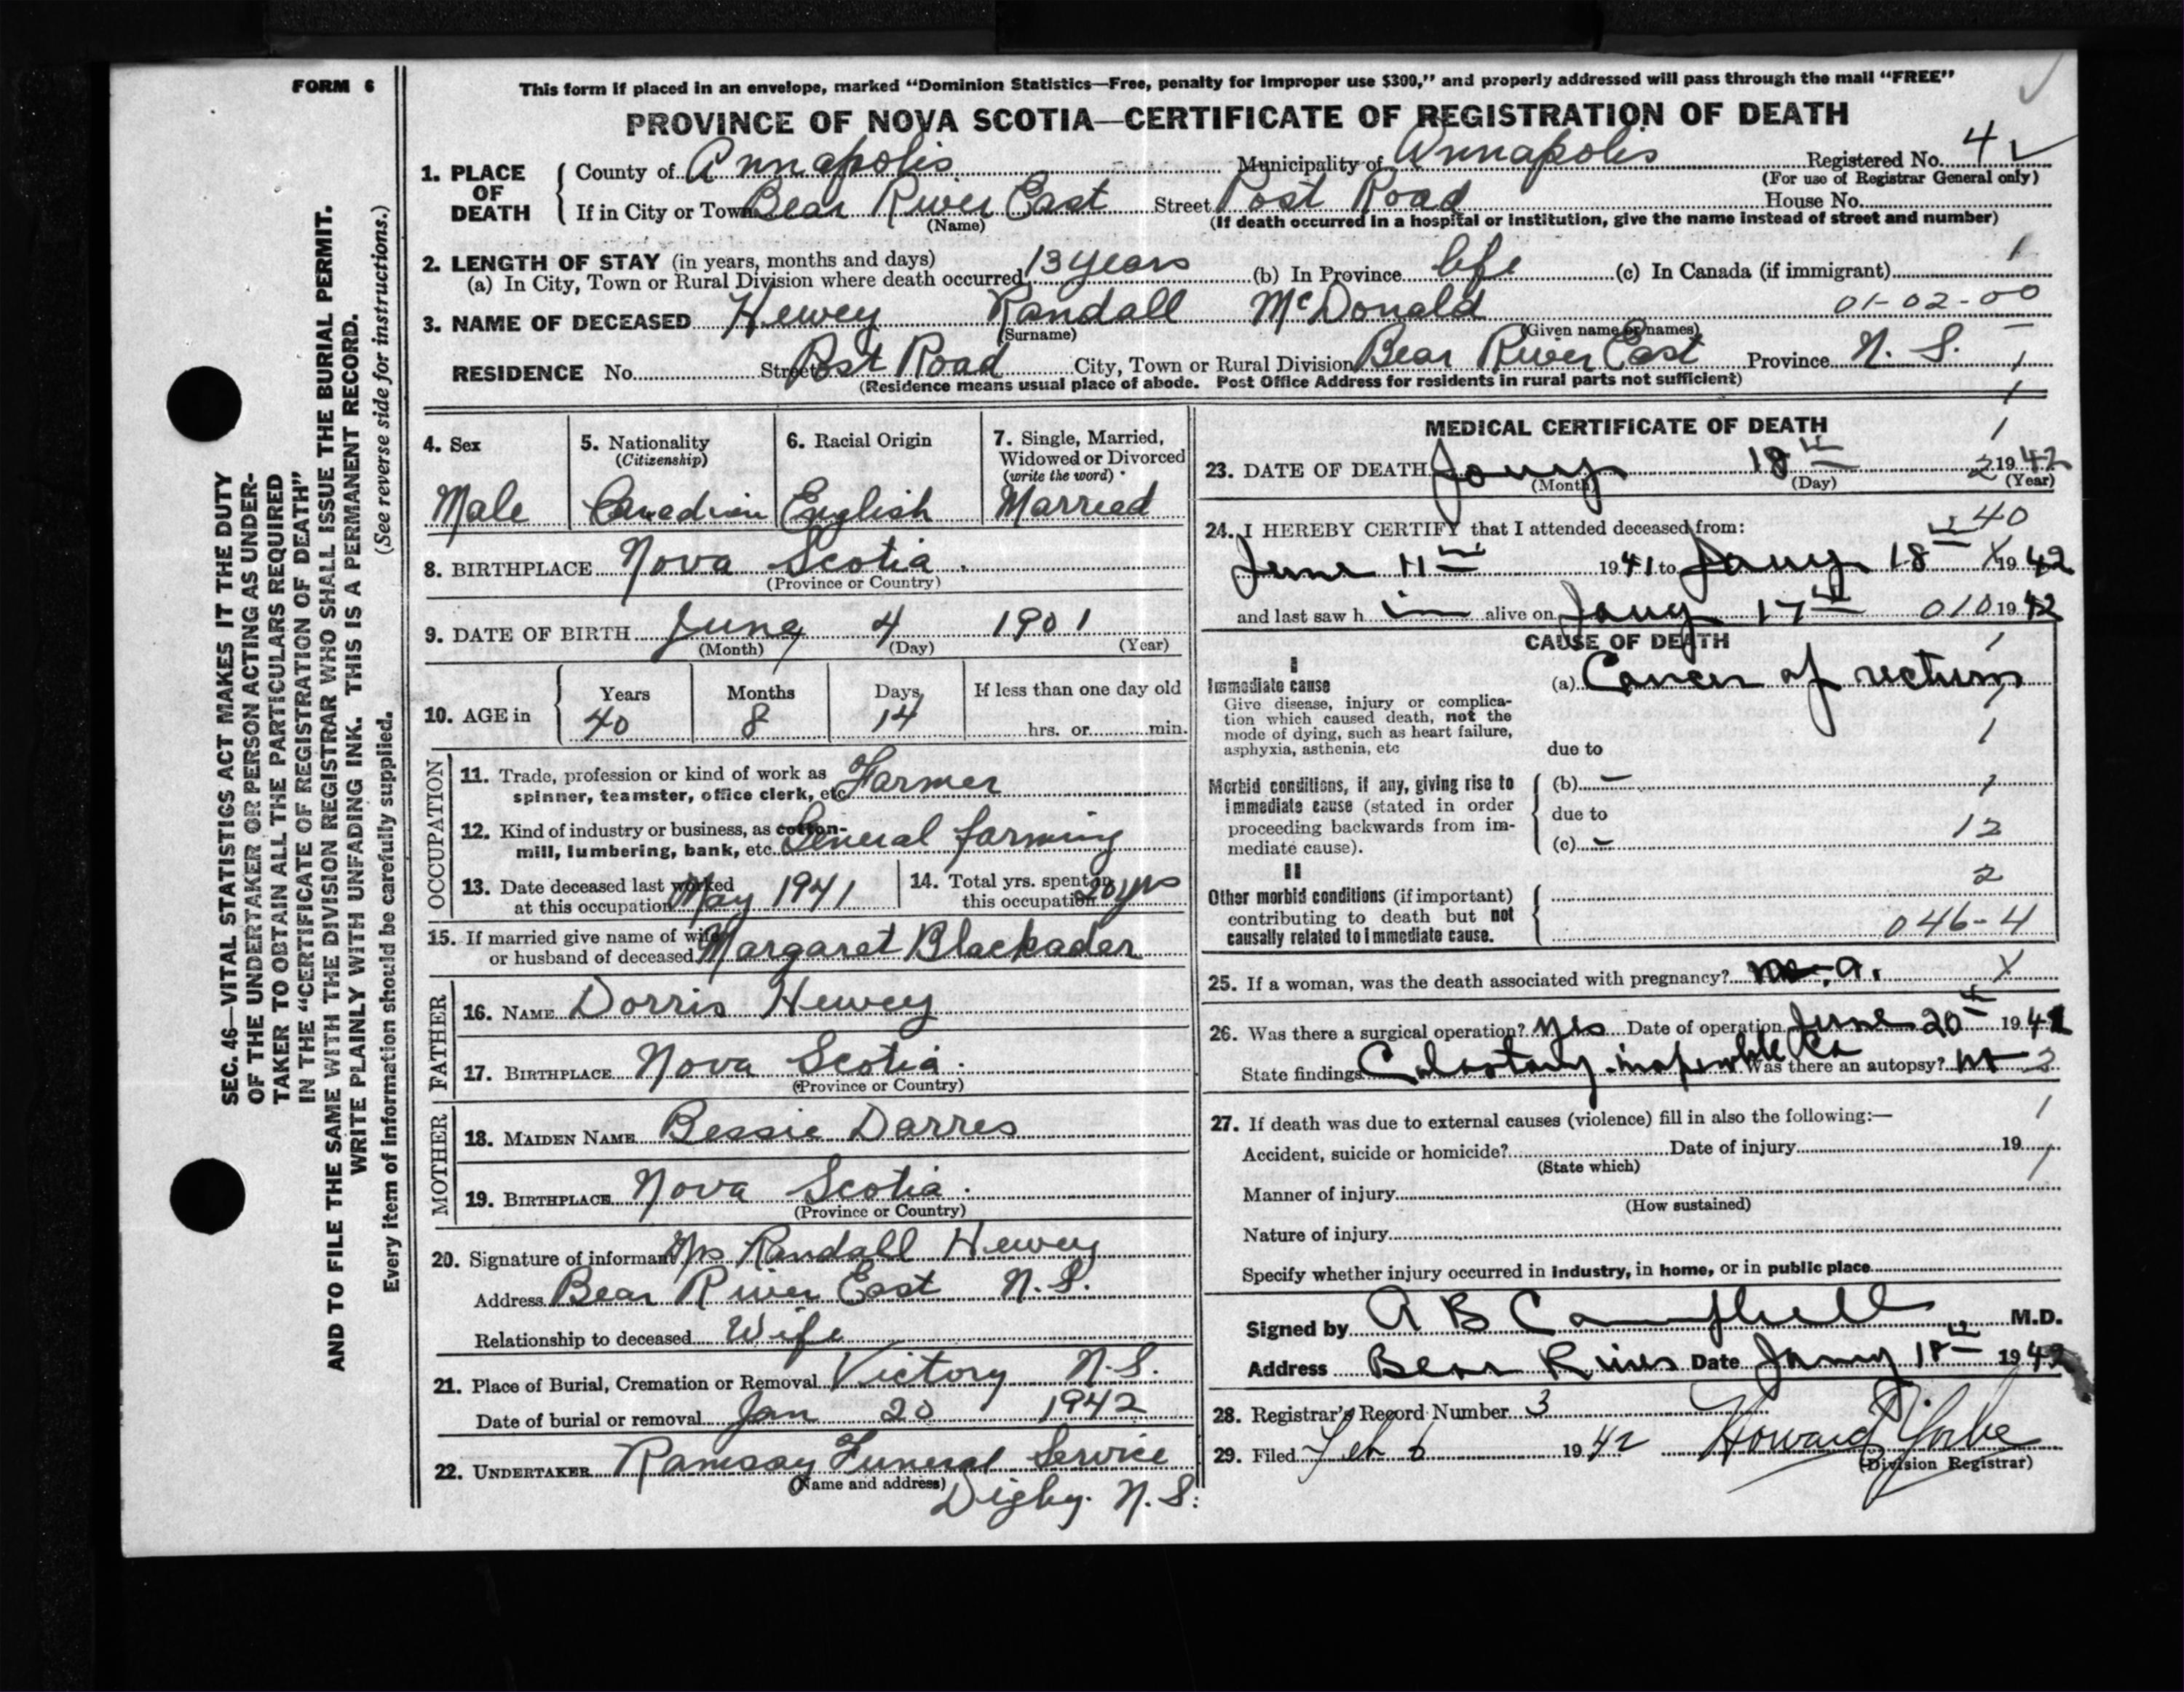 FORM 6
This form if placed in an envelope, marked “Dominion Statistics—Free, penalty for improper use $300,” and properly addressed will pass through the mail “FREE”
PROVINCE OF NOVA SCOTIA—CERTIFICATE OF REGISTRATION OF DEATH
SEC. 46—VITAL STATISTICS ACT MAKES IT THE DUTY
OF THE UNDERTAKER OR PERSON ACTING AS UNDER-
TAKER TO OBTAIN ALL THE PARTICULARS REQUIRED
IN THE “CERTIFICATE OF REGISTRATION OF DEATH”
AND TO FILE THE SAME WITH THE DIVISION REGISTRAR WHO SHALL ISSUE THE BURIAL PERMIT.
WRITE PLAINLY WITH UNFADING INK. THIS IS A PERMANENT RECORD.
Every item of information should be carefully supplied. (See reverse side for instructions.)
1. PLACE OF DEATH
County of Annapolis Municipality of Annapolis Registered No. 42
(For use of Registrar General only)
If in City or Town Bear River East Street Post Road House No.
(Name) (If death occurred in a hospital or institution, give the name instead of street and number)
2. LENGTH OF STAY (in years, months and days)
(a) In City, Town or Rural Division where death occurred 13 years (b) In Province life (c) In Canada (if immigrant) 1
01-02-00
3. NAME OF DECEASED Hewey Randall McDonald
(Surname) (Given name or names)
RESIDENCE No. Street Post Road City, Town or Rural Division Bear River East Province N. S.
(Residence means usual place of abode. Post Office Address for residents in rural parts not sufficient)
4. Sex
Male
5. Nationality
(Citizenship)
Canadian
6. Racial Origin
English
7. Single, Married,
Widowed or Divorced
(write the word)
Married
8. BIRTHPLACE Nova Scotia.
(Province or Country)
9. DATE OF BIRTH June 4 1901
(Month) (Day) (Year)
10. AGE in
Years Months Days If less than one day old
40 8 14 hrs. or min.
OCCUPATION
11. Trade, profession or kind of work as
spinner, teamster, office clerk, etc. Farmer
12. Kind of industry or business, as cotton-
mill, lumbering, bank, etc. General farming
13. Date deceased last worked
at this occupation May 1941
14. Total yrs. spent on
this occupation 20 yrs
15. If married give name of wife
or husband of deceased Margaret Blackader
FATHER
16. NAME Dorris Hewey
17. BIRTHPLACE Nova Scotia.
(Province or Country)
MOTHER
18. MAIDEN NAME Bessie Darres
19. BIRTHPLACE Nova Scotia.
(Province or Country)
20. Signature of informant Mrs Randall Hewey
Address Bear River East N.S.
Relationship to deceased Wife
21. Place of Burial, Cremation or Removal Victory N.S.
Date of burial or removal Jan 20 1942
22. UNDERTAKER Ramsay Funeral Service
(Name and address) Digby. N.S.
MEDICAL CERTIFICATE OF DEATH
23. DATE OF DEATH Jany 18th 2 1942
(Month) (Day) (Year)
40
24. I HEREBY CERTIFY that I attended deceased from:
June 11th 1941 to Jany 18th X 1942
and last saw h im alive on Jany 17th 010 1942
CAUSE OF DEATH
I
Immediate cause
Give disease, injury or complica-
tion which caused death, not the
mode of dying, such as heart failure,
asphyxia, asthenia, etc
(a) Cancer of rectum
due to
Morbid conditions, if any, giving rise to
immediate cause (stated in order
proceeding backwards from im-
mediate cause).
(b) — 1
due to
12
(c) —
II
2
Other morbid conditions (if important)
contributing to death but not
causally related to immediate cause.
046-4
25. If a woman, was the death associated with pregnancy? X
26. Was there a surgical operation? Yes Date of operation June 20th 1941
State findings Colostomy - inoperable Ca Was there an autopsy? no 2
27. If death was due to external causes (violence) fill in also the following:— 1
Accident, suicide or homicide? Date of injury 19
(State which)
Manner of injury
(How sustained)
Nature of injury
Specify whether injury occurred in industry, in home, or in public place
Signed by A B Campbell M.D.
Address Bear River Date Jany 18th 1942
28. Registrar's Record Number 3
29. Filed Feb 6 1942 Howard
(Division Registrar)